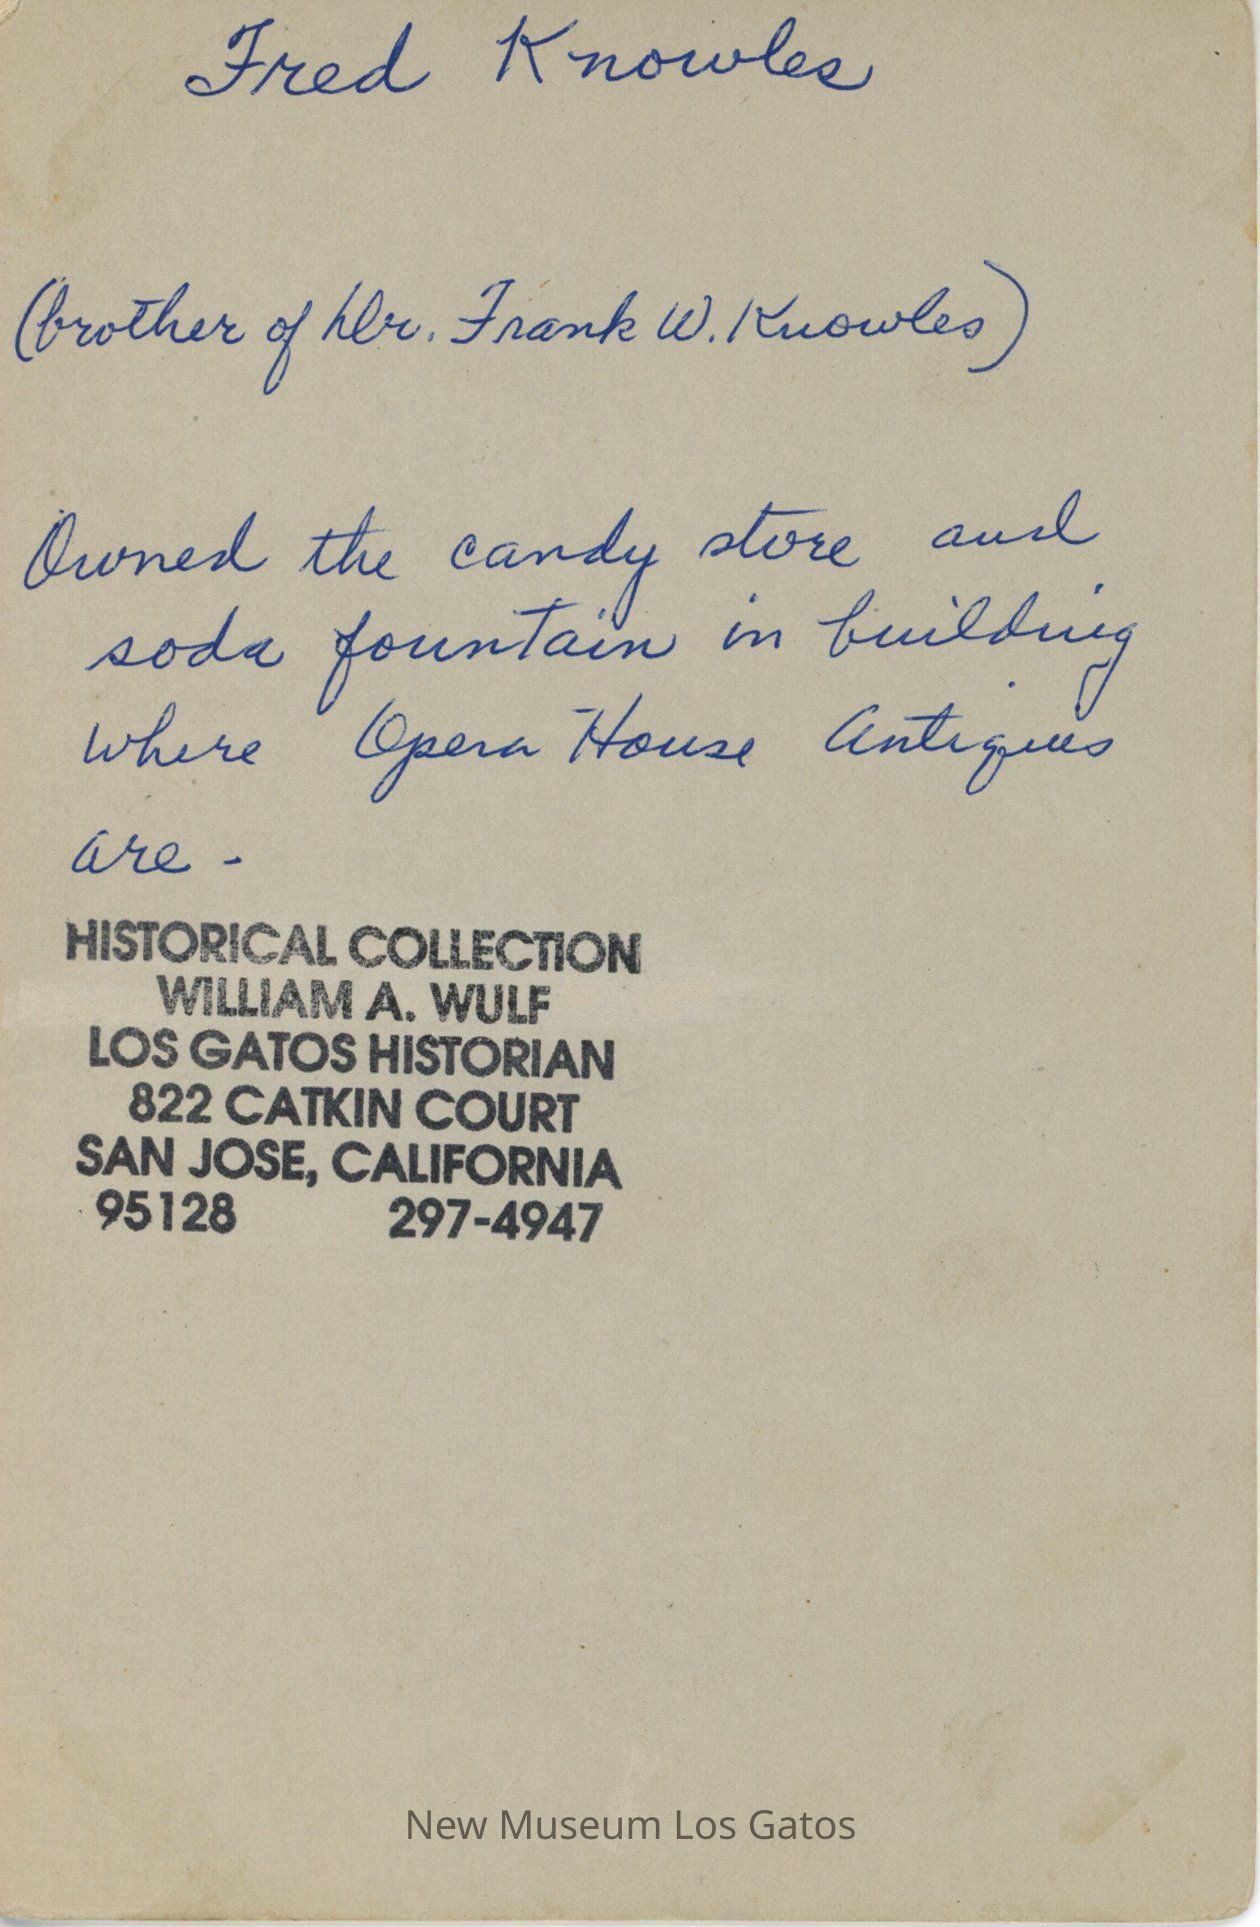 Fred Knowles
(brother of Dr. Frank W. Knowles)
Owned the candy store and
soda fountain in building
where Opera House Antiques
are -
HISTORICAL COLLECTION
WILLIAM A. WULF
LOS GATOS HISTORIAN
822 CATKIN COURT
SAN JOSE, CALIFORNIA
95128 297-4947
New Museum Los Gatos